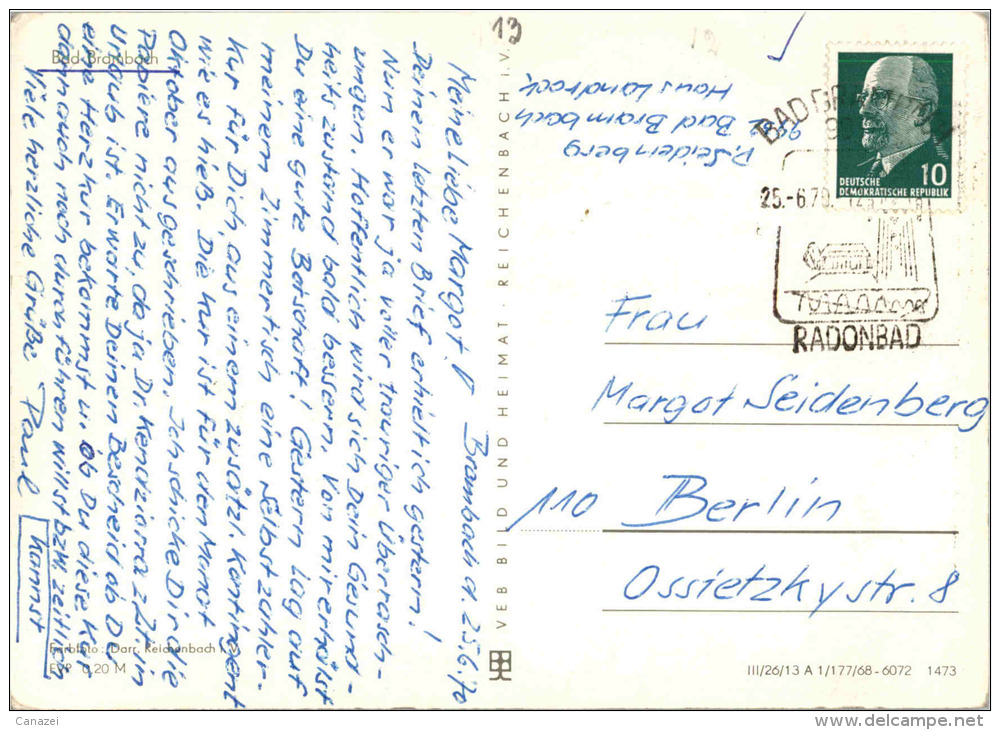 13
Bad Brambach
Brambach d. 25.6.70
Meine liebe Margot!
Deinen letzten Brief erhielt ich gestern!
Nun er war ja voller trauriger Überrasch-
ungen. Hoffentlich wird sich Dein Gesund-
heitszustand bald bessern. Von mir erhälst
Du eine gute Botschaft! Gestern lag auf
meinem Zimmertisch eine Selbstzahler-
Kur für Dich, aus einem zusätzl. Kontingent
wie es hieß. Die Kur ist für den Monat
Oktober ausgeschrieben. Ich schicke Dir die
Papiere nicht zu, da ja Dr. zZt. in
Urlaub ist. Erwarte Deinen Bescheid ob Du
eine Herzkur bekommst u. ob Du diese Kur
dann auch noch durchführen willst bzw. zeitlich
kannst
Viele herzliche Grüße Paul
Farbfoto: Darr, Reichenbach i. V.
EVP 0,20 M
VEB BILD UND HEIMAT · REICHENBACH I.V.
P. Seidenberg
992 Bad Brambach
Haus Landrock
BAD BRAMBACH
25.-6.70
RADONBAD
10
DEUTSCHE
DEMOKRATISCHE REPUBLIK
Frau
Margot Seidenberg
110 Berlin
Ossietzkystr. 8
III/26/13 A 1/177/68-6072 1473
Canazei
delcampe.net